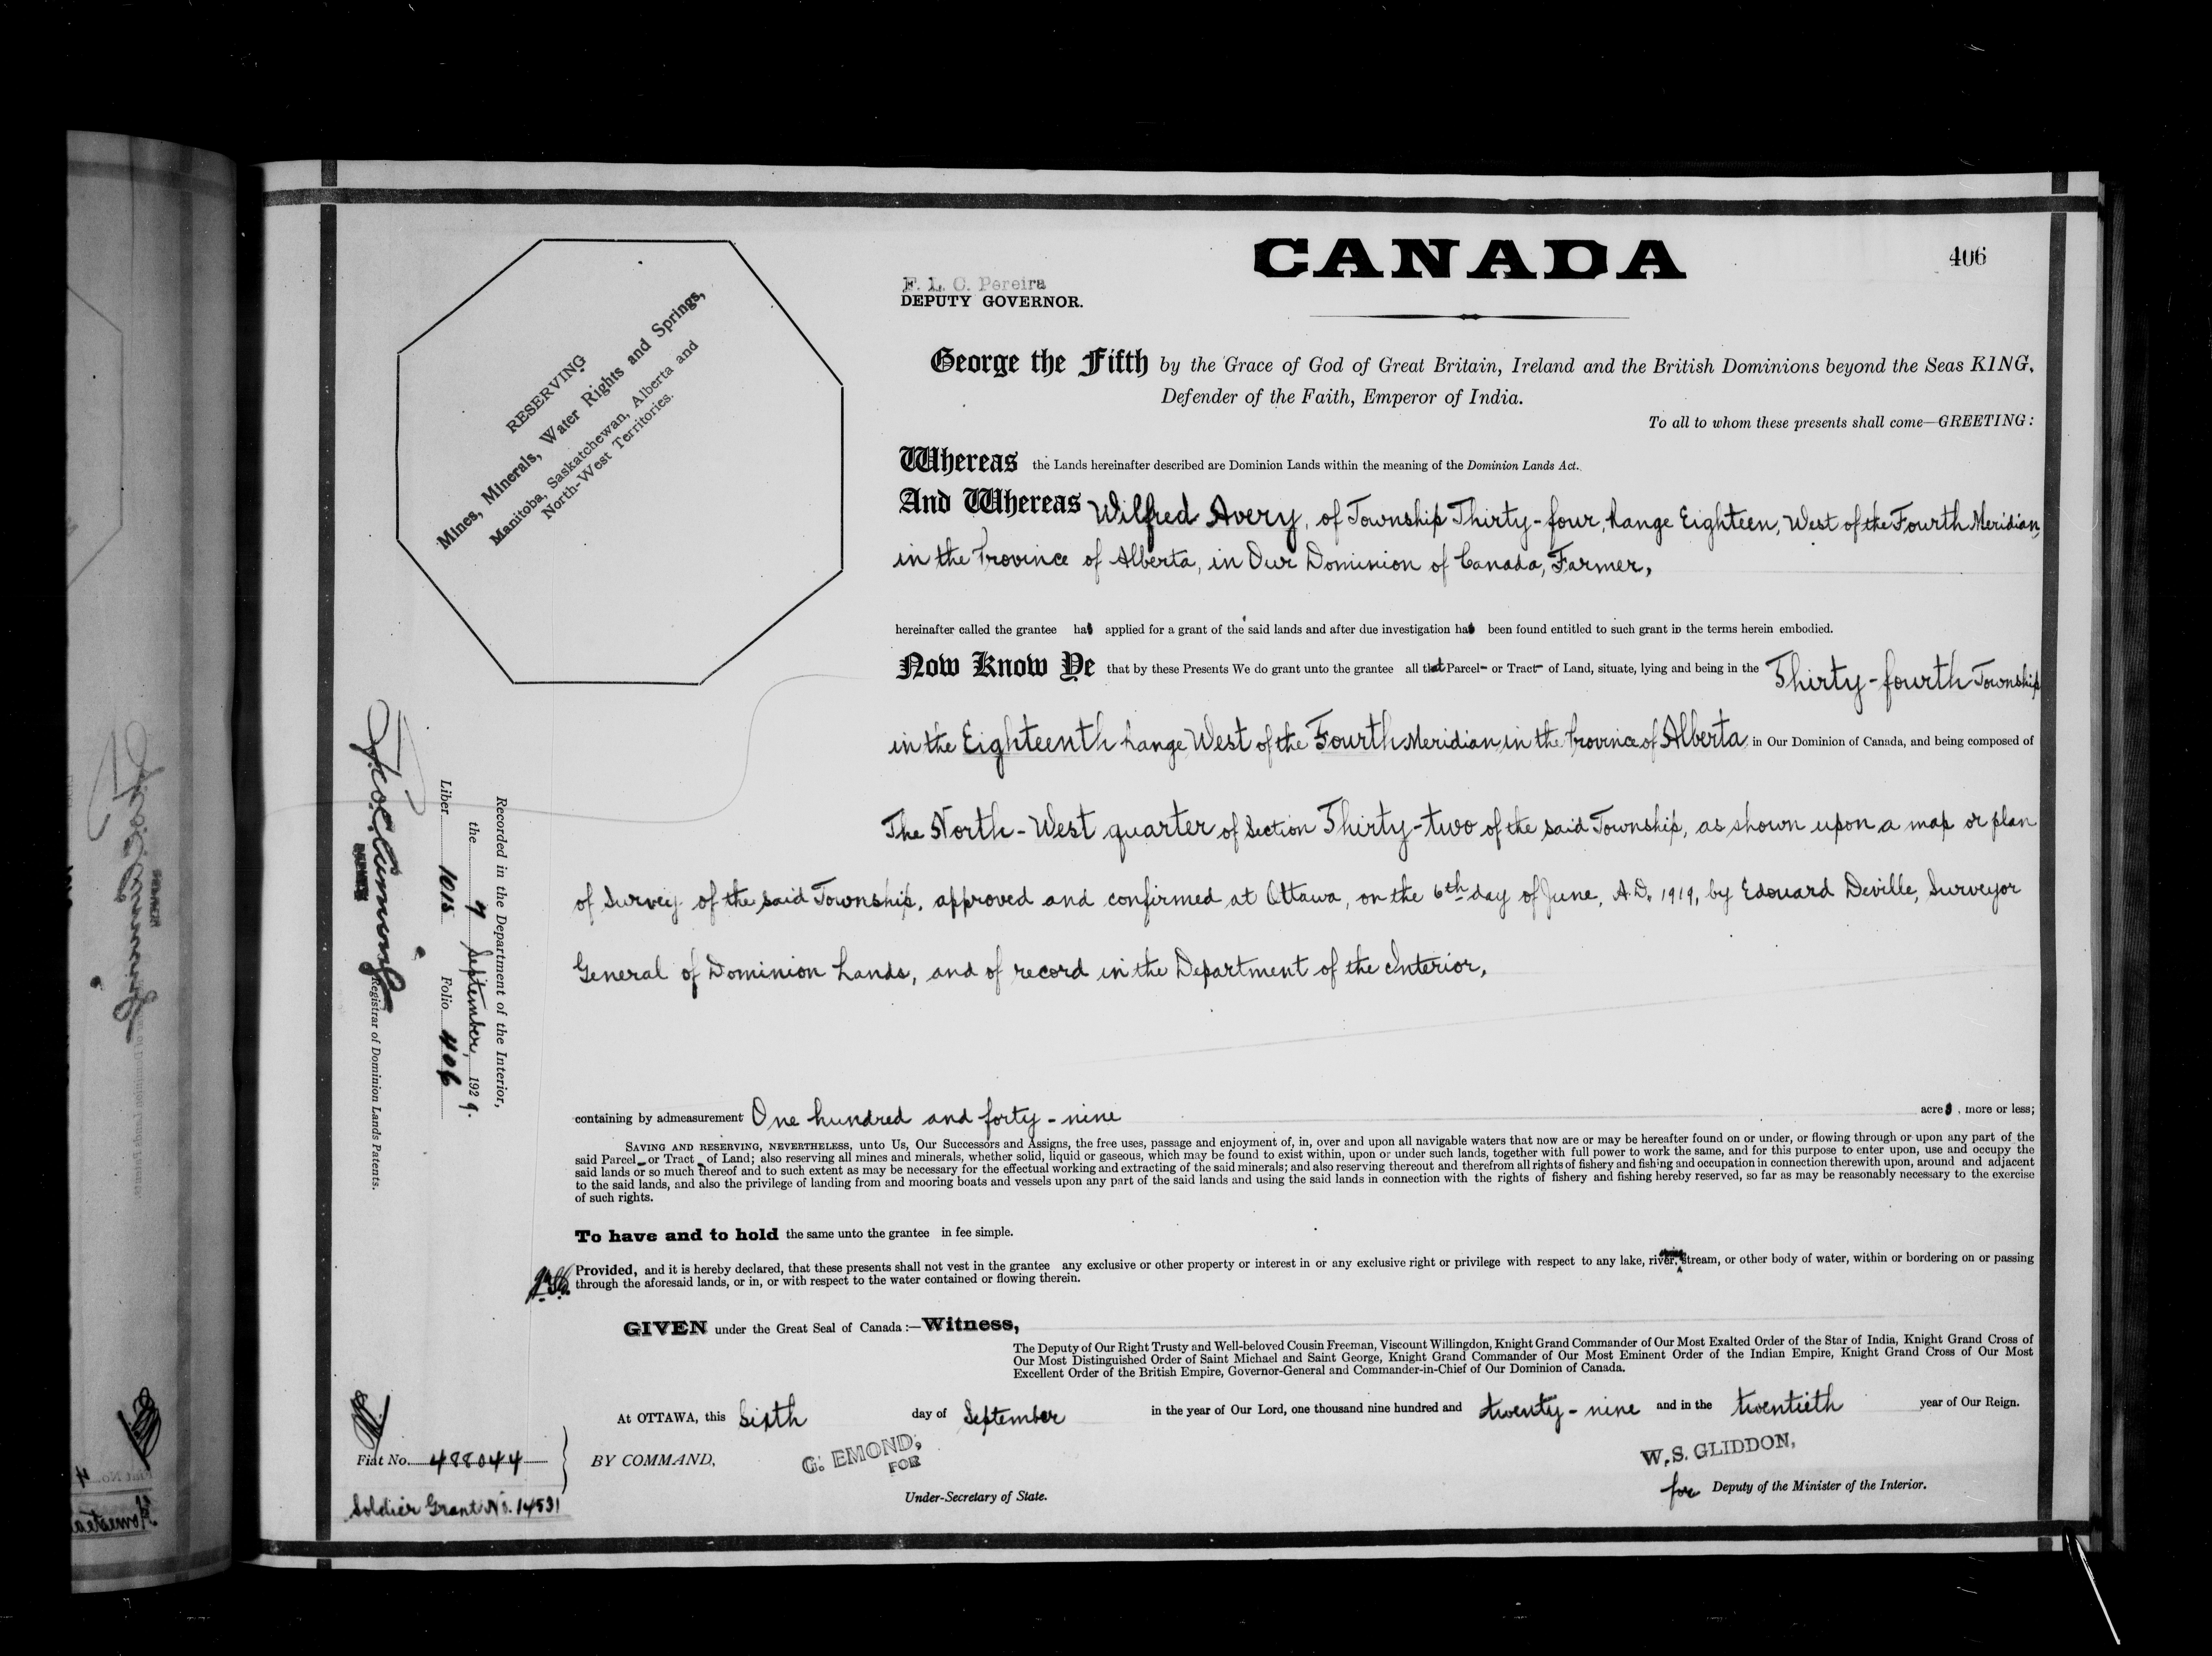 CANADA
406
F. L. C. Pereira
DEPUTY GOVERNOR.
RESERVING
Mines, Minerals, Water Rights and Springs,
Manitoba, Saskatchewan, Alberta and
North-West Territories.
George the Fifth by the Grace of God of Great Britain, Ireland and the British Dominions beyond the Seas KING,
Defender of the Faith, Emperor of India.
To all to whom these presents shall come—GREETING:
Whereas the Lands hereinafter described are Dominion Lands within the meaning of the Dominion Lands Act.
And Whereas Wilfred Avery, of Township Thirty-four, Range Eighteen, West of the Fourth Meridian,
in the Province of Alberta, in Our Dominion of Canada, Farmer,
hereinafter called the grantee has applied for a grant of the said lands and after due investigation has been found entitled to such grant in the terms herein embodied.
Now Know Ye that by these Presents We do grant unto the grantee all that Parcel or Tract of Land, situate, lying and being in the Thirty-fourth Township
in the Eighteenth Range West of the Fourth Meridian, in the Province of Alberta in Our Dominion of Canada, and being composed of
The North-West quarter of Section Thirty-two of the said Township, as shown upon a map or plan
of Survey of the said Township, approved and confirmed at Ottawa, on the 6th day of June, A.D. 1919, by Edouard Deville, Surveyor
General of Dominion Lands, and of record in the Department of the Interior,
containing by admeasurement One hundred and forty-nine acres, more or less;
SAVING AND RESERVING, NEVERTHELESS, unto Us, Our Successors and Assigns, the free uses, passage and enjoyment of, in, over and upon all navigable waters that now are or may be hereafter found on or under, or flowing through or upon any part of the
said Parcel or Tract of Land; also reserving all mines and minerals, whether solid, liquid or gaseous, which may be found to exist within, upon or under such lands, together with full power to work the same, and for this purpose to enter upon, use and occupy the
said lands or so much thereof and to such extent as may be necessary for the effectual working and extracting of the said minerals; and also reserving thereout and therefrom all rights of fishery and fishing and occupation in connection therewith upon, around and adjacent
to the said lands, and also the privilege of landing from and mooring boats and vessels upon any part of the said lands and using the said lands in connection with the rights of fishery and fishing hereby reserved, so far as may be reasonably necessary to the exercise
of such rights.
To have and to hold the same unto the grantee in fee simple.
Provided, and it is hereby declared, that these presents shall not vest in the grantee any exclusive or other property or interest in or any exclusive right or privilege with respect to any lake, river, stream, or other body of water, within or bordering on or passing
through the aforesaid lands, or in, or with respect to the water contained or flowing therein.
GIVEN under the Great Seal of Canada:—Witness,
The Deputy of Our Right Trusty and Well-beloved Cousin Freeman, Viscount Willingdon, Knight Grand Commander of Our Most Exalted Order of the Star of India, Knight Grand Cross of
Our Most Distinguished Order of Saint Michael and Saint George, Knight Grand Commander of Our Most Eminent Order of the Indian Empire, Knight Grand Cross of Our Most
Excellent Order of the British Empire, Governor-General and Commander-in-Chief of Our Dominion of Canada.
At OTTAWA, this Sixth day of September in the year of Our Lord, one thousand nine hundred and twenty-nine and in the twentieth year of Our Reign.
BY COMMAND,
G. EMOND,
FOR
Under-Secretary of State.
W. S. GLIDDON,
for Deputy of the Minister of the Interior.
Fiat No. 488044
Soldier Grant No. 14531
Recorded in the Department of the Interior,
the 7 September, 1929.
Liber 1015 Folio 406
Registrar of Dominion Lands Patents.